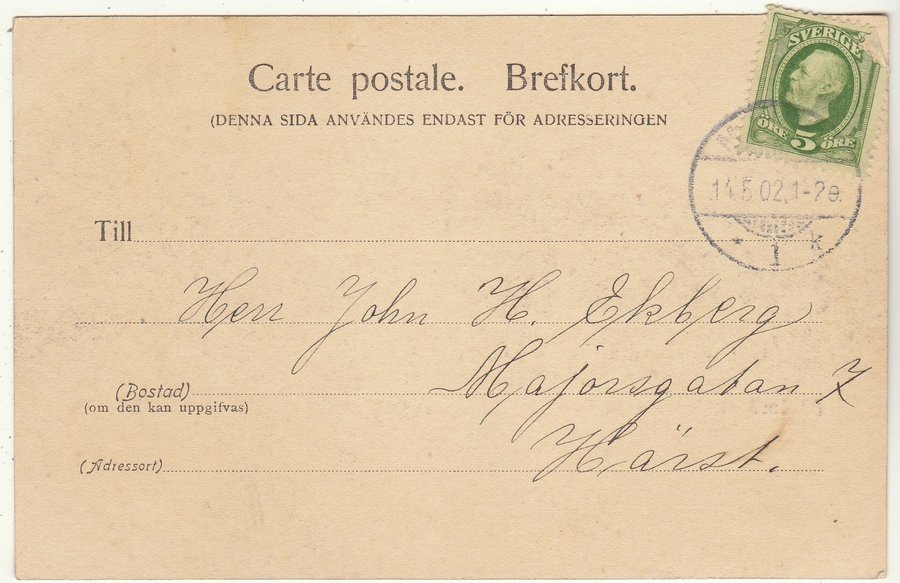 Carte postale. Brefkort.
(DENNA SIDA ANVÄNDES ENDAST FÖR ADRESSERINGEN
SVERIGE
ÖRE 5 ÖRE
14.5.02,1-2e.
* 1 k
Till
Herr John H. Ekberg
(Bostad) Majorsgatan 7
(om den kan uppgifvas)
(Adressort) Härst.